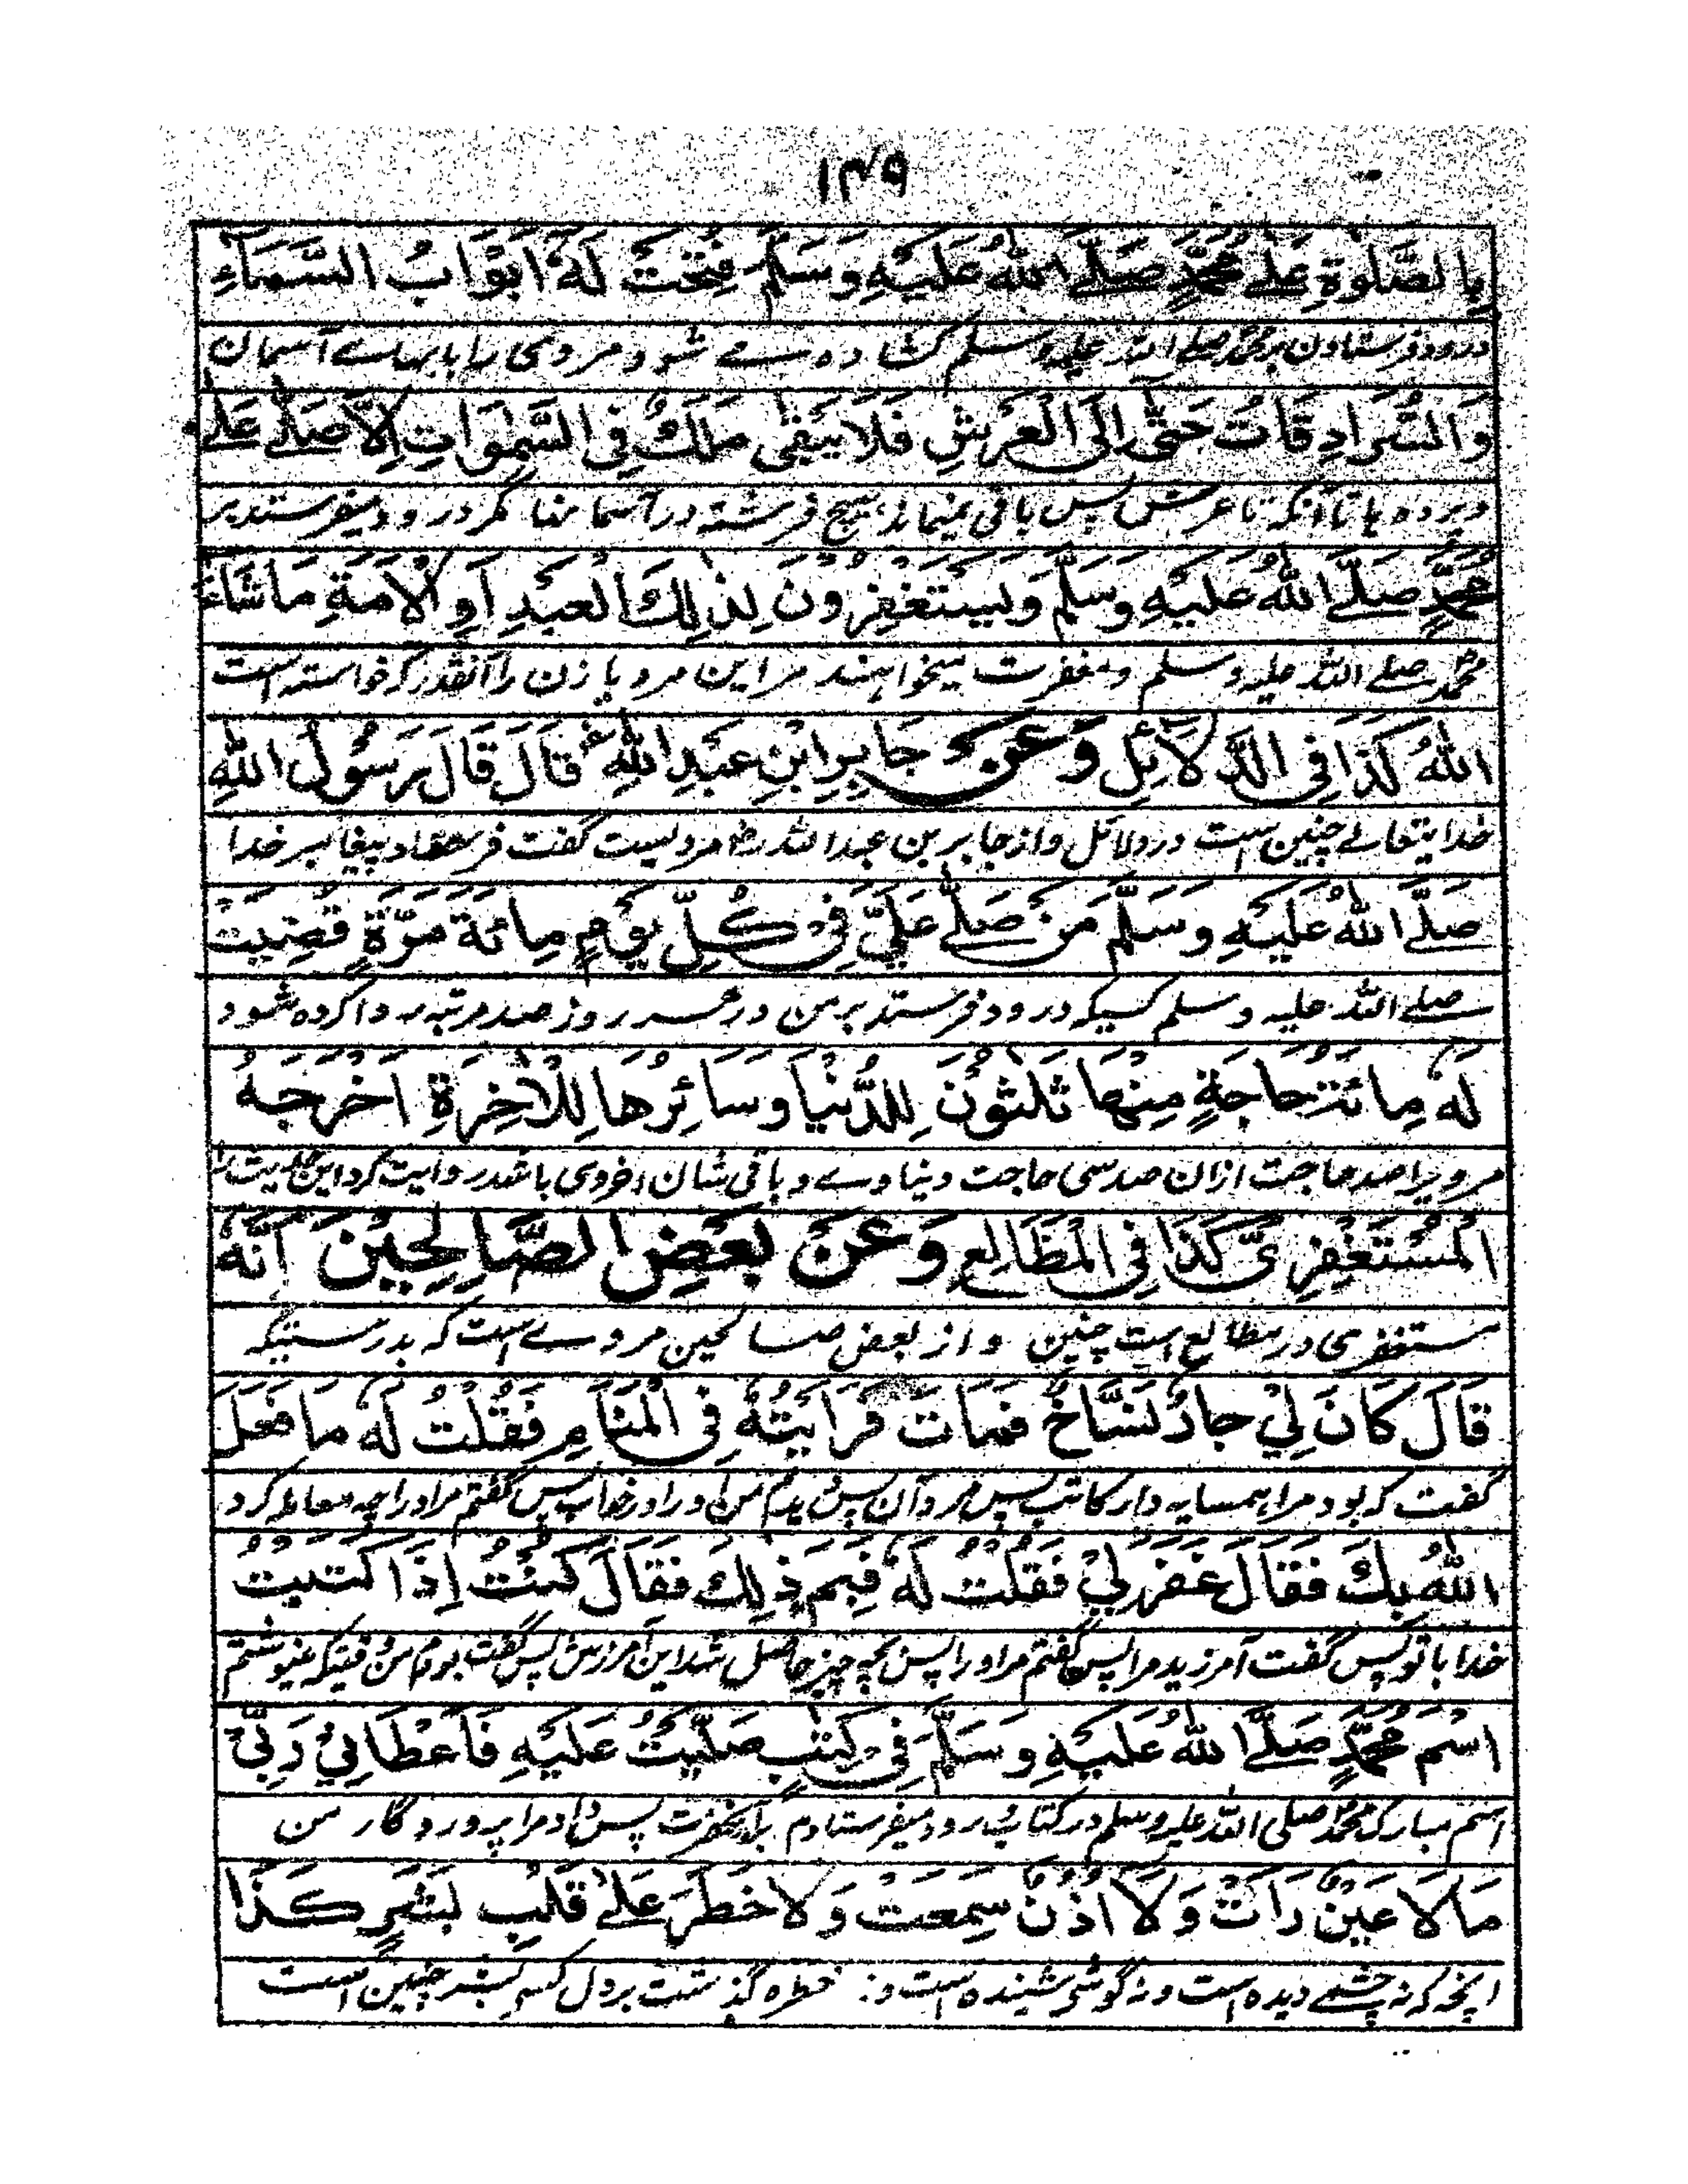 ۱۴۹
بِالصَّلٰوةِ عَلٰی مُحَمَّدٍ صَلَّے اللهُ عَلَيْهِ وَسَلَّمَ فُتِحَتْ لَهٗ اَبْوَابُ السَّمَآءِ
درود فرستادن بر محمد صلے الله علیه وسلم کشاده مے شود مر وی را بابہاے آسمان
وَالسُّرَادِقَاتُ حَتّٰی اِلَی الْعَرْشِ فَلَا يَبْقٰی مَلَكٌ فِی السَّمٰوَاتِ اِلَّا صَلّٰے عَلٰے
وپرده ہا تا آنکه تا عرش پس باقی نمیماند ہیچ فرشته در آسمانہا مگر درود میفرستد بر
مُحَمَّدٍ صَلَّے اللهُ عَلَيْهِ وَسَلَّمَ وَيَسْتَغْفِرُوْنَ لِذٰلِكَ الْعَبْدِ اَوِ الْاَمَةِ مَاشَآءَ
محمد صلے الله علیه وسلم ومغفرت میخواہند مر این مرد یا زن را آنقدر که خواسته است
اللهُ كَذَا فِی الدَّلَائِلِ وَعَنْ جَابِرِ ابْنِ عَبْدِ اللهِ قَالَ قَالَ رَسُوْلُ اللهِ
خدایتعالے چنین است در دلائل و از جابر بن عبدالله رض مرویست گفت فرمود پیغامبر خدا
صَلَّے اللهُ عَلَيْهِ وَسَلَّمَ مَنْ صَلّٰے عَلَيَّ فِیْ كُلِّ يَوْمٍ مِائَةَ مَرَّةٍ قُضِيَتْ
صلے الله علیه وسلم کسیکه درود فرستد بر من در هر روز صد مرتبه روا کرده شود
لَهٗ مِائَةُ حَاجَةٍ مِنْهَا ثَلٰثُوْنَ لِلدُّنْيَا وَسَائِرُهَا لِلْاٰخِرَةِ اَخْرَجَهُ
مر ویرا صد حاجت ازان صد سی حاجت دنیا وے و باقی شان اخروی باشد روایت کرد این حدیث را
الْمُسْتَغْفِرِیُّ كَذَا فِی الْمَطَالِعِ وَعَنْ بَعْضِ الصَّالِحِيْنَ اَنَّهٗ
مستغفری در مطالع است چنین و از بعض صالحین مروے است که بدرستیکه
قَالَ كَانَ لِيْ جَارٌ نَسَّاخٌ فَمَاتَ فَرَاَيْتُهٗ فِی الْمَنَامِ فَقُلْتُ لَهٗ مَا فَعَلَ
گفت که بود مرا ہمسایه دار کاتب پس مرد آن پس دیدم من او را در خواب پس گفتم مر او را چه معامله کرد
اللهُ بِكَ فَقَالَ غَفَرَ لِيْ فَقُلْتُ لَهٗ فَبِمَ ذٰلِكَ فَقَالَ كُنْتُ اِذَا كَتَبْتُ
خدا با تو پس گفت آمرزید مرا پس گفتم مر او را پس بچه چیز حاصل شد این آمرزش پس گفت بودم من وقتیکه مینوشتم
اسْمَ مُحَمَّدٍ صَلَّے اللهُ عَلَيْهِ وَسَلَّمَ فِیْ كِتٰبٍ صَلَّيْتُ عَلَيْهِ فَاَعْطَانِيْ رَبِّیْ
اسم مبارک محمد صلی الله علیه وسلم در کتاب درود میفرستادم بر آنحضرت پس داد مرا پروردگار من
مَا لَا عَيْنٌ رَاَتْ وَلَا اُذُنٌ سَمِعَتْ وَلَا خَطَرَ عَلٰے قَلْبِ بَشَرٍ كَذَا
آنچه که نه چشمے دیده است و نه گوشی شنیده است و نه خطره گذشت بر دل بشر چنین است